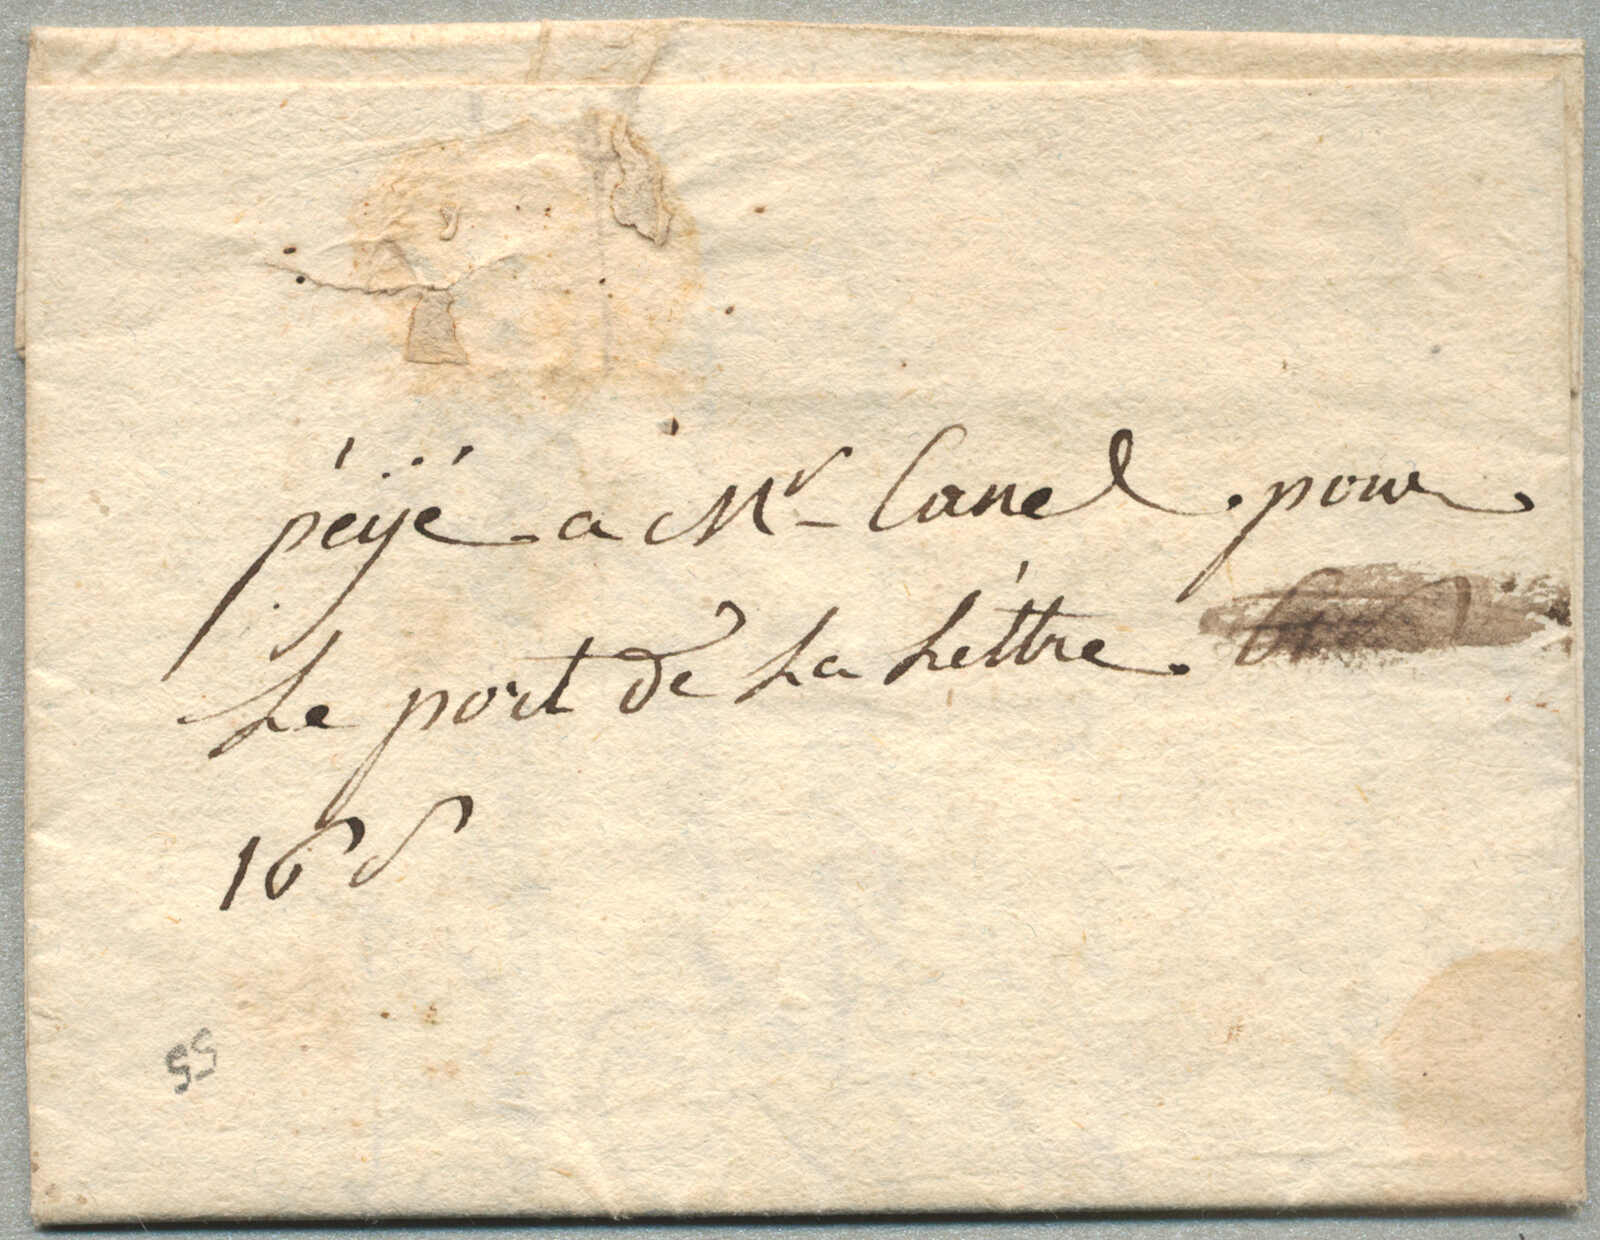 péÿé a Mr Canel pour
Le port de La Léttre.
16 s
55